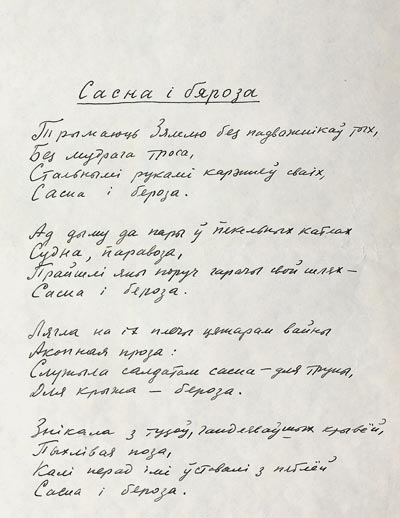 Сасна і бяроза
Трымаюць Зямлю без падважнікаў тых,
Без мудрага троса,
Стальнымі рукамі карэнняў сваіх,
Сасна і бероза.
Ад дыму да пары ў пекельных катлах
Судна, паравоза,
Прайшлі яны поруч гарачы свой шлях —
Сасна і бероза.
Лягла на іх плечы цяжарам вайны
Акопная проза:
Служыла салдатам сасна — для труны,
Для крыжа — бероза.
Знікала з тузоў, гандляваўшых крывёй,
Пыхлівая поза,
Калі перад імі ўставалі з пятлёй
Сасна і бероза.